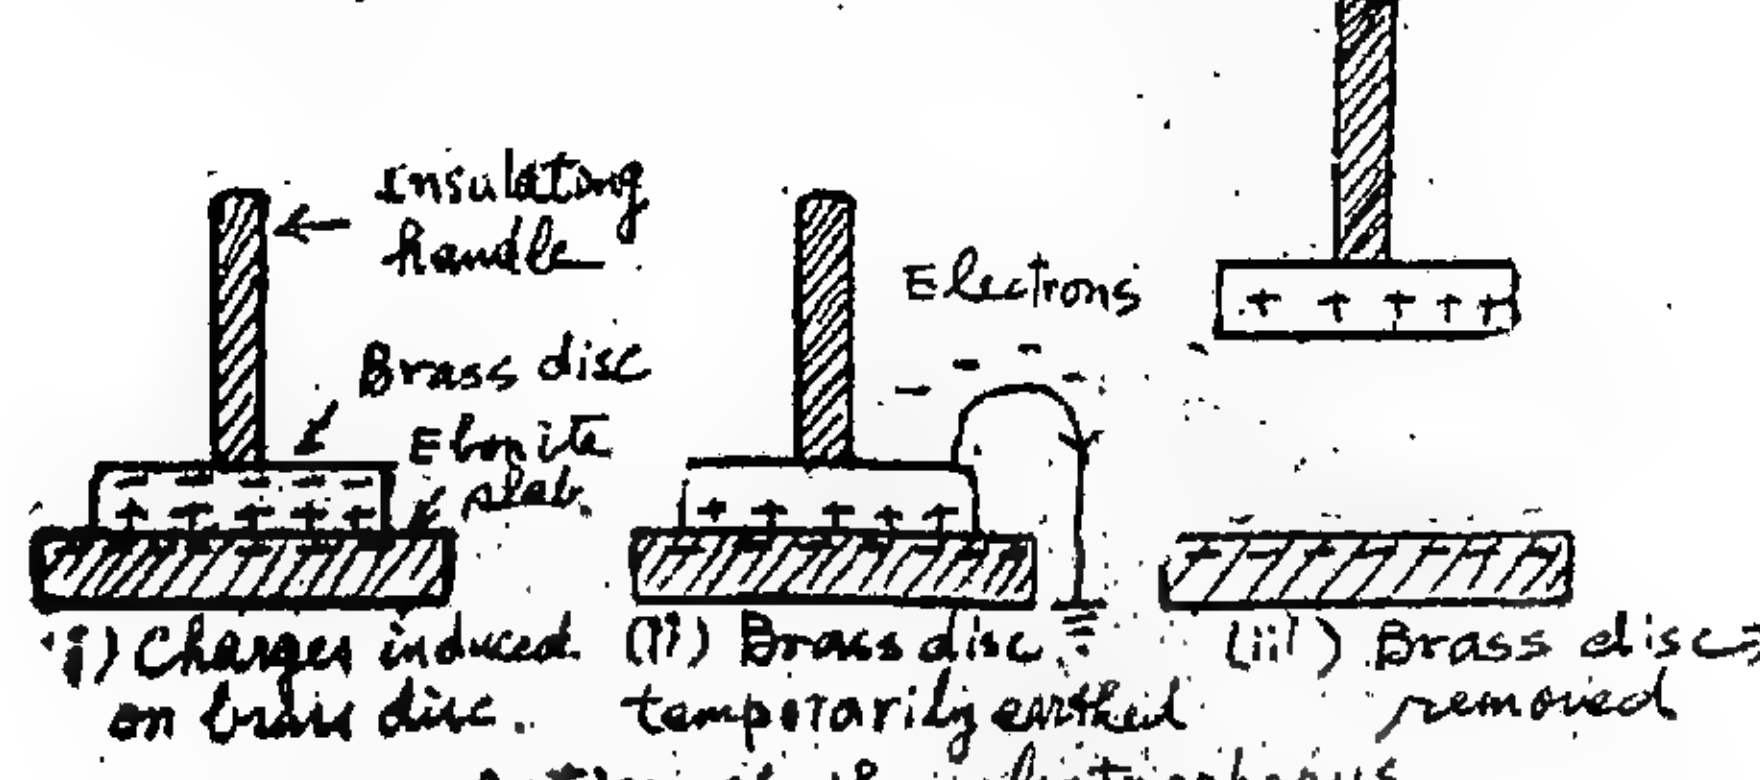 Insulating
handle
Brass disc
Ebonite
slab
Electrons
i) Charges induced
on brass disc.
(ii) Brass disc
temporarily earthed
(iii) Brass disc
removed
electrophorus